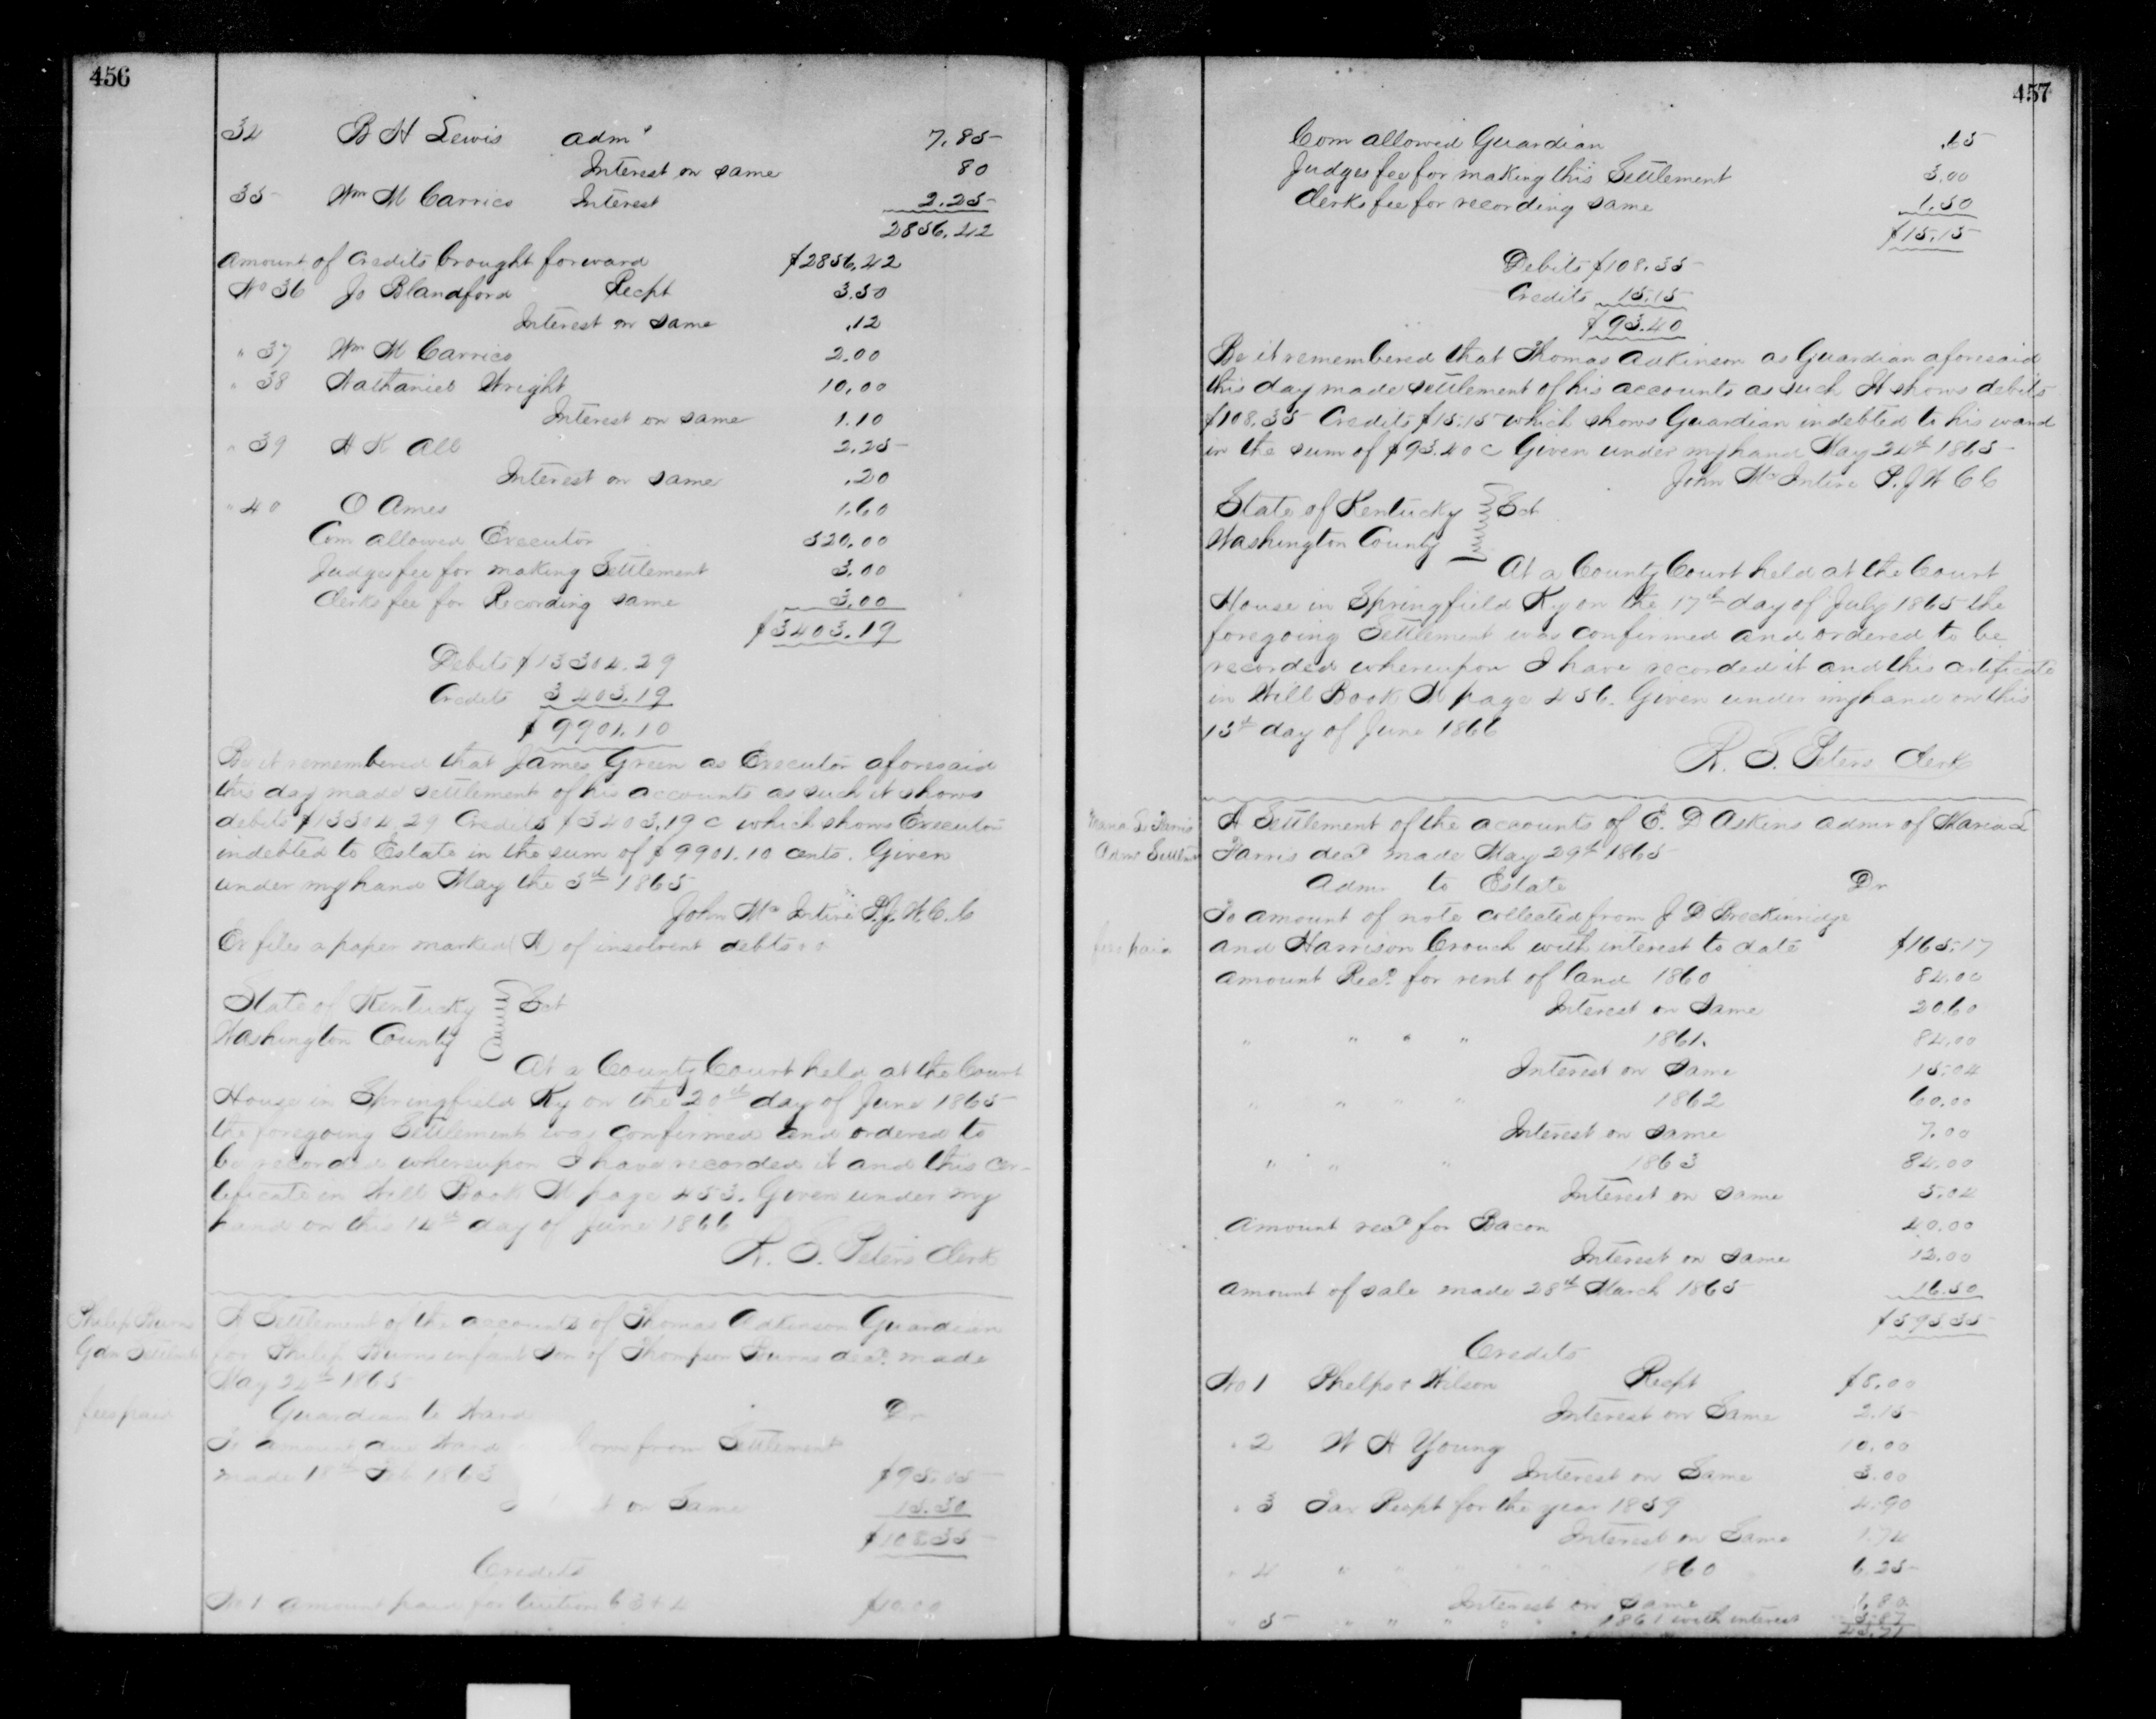 456
34 B H Lewis admr 7.85
Interest on same 80
35 Wm M Carrico Interest 2.25
2856.42
Amount of Credits brought forward $2856.42
No 36 Jo Blandford Recpt 3.50
Interest on same .12
" 37 Wm M Carrico 2.00
" 38 Nathaniel Wright 10.00
Interest on same 1.10
" 39 H K All 2.25
Interest on same .20
" 40 O Ames 1.60
Com allowed Executor 520.00
Judges fee for making Settlement 3.00
Clerks fee for Recording same 3.00
$3403.19
Debits $13304.29
Credits 3403.19
$9901.10
Be it remembered that James Green as Executor aforesaid
this day made settlement of his accounts as such it shows
debits $13304.29 Credits $3403.19 c which shows Executor
indebted to Estate in the sum of $9901.10 cents. Given
under my hand May the 3rd 1865
John McIntire P.J.W.C.C
Ex files a paper marked (A) of insolvent debts
State of Kentucky Sct
Washington County
At a County Court held at the Court
House in Springfield Ky on the 20th day of June 1865
the foregoing Settlement was confirmed and ordered to
be recorded whereupon I have recorded it and this cer-
tificate in Will Book M page 453. Given under my
hand on this 14th day of June 1866
R. S. Peters Clerk
Philip Burns
Gdn Settlmt
fees paid
A Settlement of the accounts of Thomas Adkinson Guardian
for Philip Burns infant Son of Thompson Burns decd. made
May 24th 1865
Guardian to Ward Dr
To amount due Ward from Settlement
made 18th Feb 1863 $95.05
on Same 13.30
$108.35
Credits
No 1 amount paid for tuition 63 & 4 $10.00
457
Com allowed Guardian .65
Judges fee for making this Settlement 3.00
Clerks fee for recording same 1.50
$15.15
Debits $108.35
Credits 15.15
$93.40
Be it remembered that Thomas Adkinson as Guardian aforesaid
this day made settlement of his accounts as such It shows debits
$108.35 Credits $15.15 which shows Guardian indebted to his ward
in the sum of $93.40 c Given under my hand May 24th 1865
John McIntire P.J W C C
State of Kentucky Sct
Washington County
At a County Court held at the Court
House in Springfield Ky on the 17th day of July 1865 the
foregoing Settlement was confirmed and ordered to be
recorded whereupon I have recorded it and this certificate
in Will Book M page 456. Given under my hand on this
15th day of June 1866
R. S. Peters Clerk
Maria L Farris
Admr Settlmt
fees paid
A Settlement of the accounts of E. D Askins admr of Maria L
Farris decd made May 29th 1865
Admr to Estate Dr
To amount of note collected from J D Breckinridge
and Harrison Crouch with interest to date $165.17
Amount Recd for rent of land 1860 84.00
Interest on Same 20.60
" " " " 1861. 84.00
Interest on Same 15.04
" " " " 1862 60.00
Interest on Same 7.00
" " " 1863 84.00
Interest on same 5.04
Amount recd for Bacon 40.00
Interest on Same 12.00
Amount of sale made 28th March 1865 16.50
$593 35
Credits
No 1 Phelps & Wilson Recpt $8.00
Interest on Same 2.15
" 2 W H Young 10.00
Interest on Same 3.00
" 3 Tax Recpt for the year 1859 4.90
Interest on Same 1.74
" 4 " " " " 1860 6.25
Interest on Same 1.80
" 5 " " " " 1861 with interest